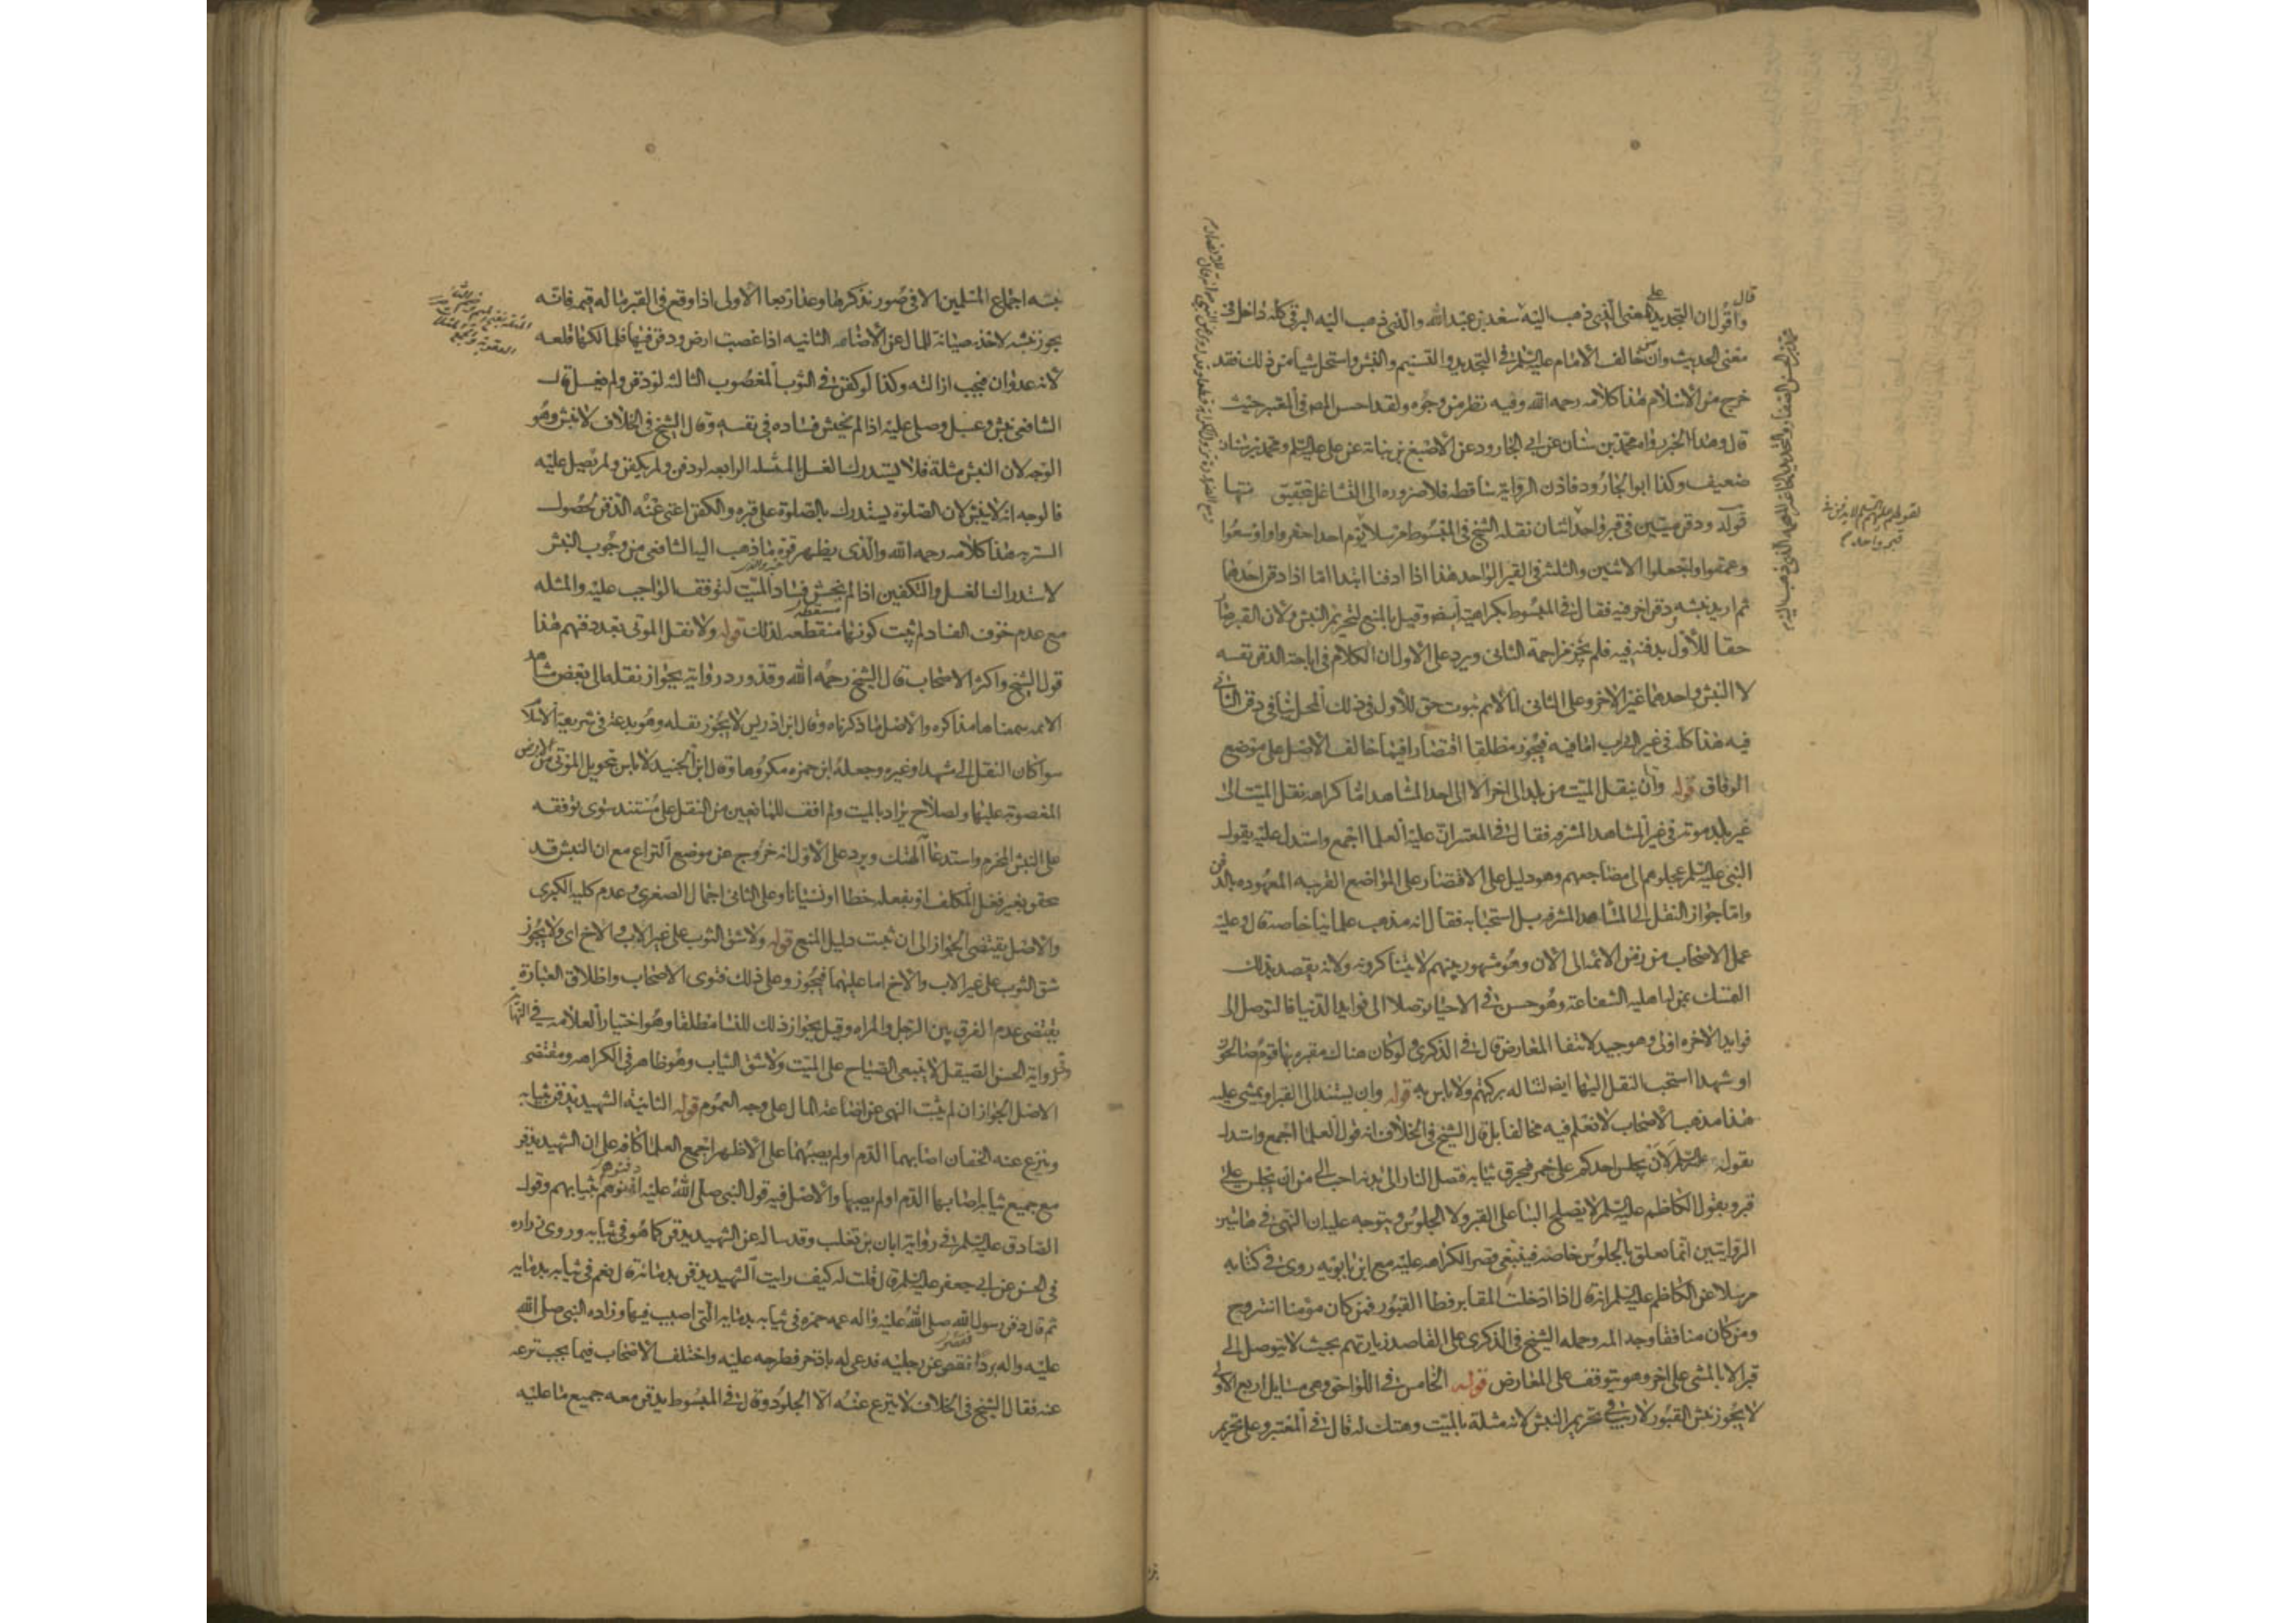 قال
واقول ان التجديد على المعنى الذي ذهب اليه سعد بن عبد الله والذي ذهب اليه البرقي كله داخل في
معنى الحديث وان من خالف الامام عليه السلم في التجديد والتسنيم والنبش واستحل شيا من ذلك فقد
خرج من الاسلام هذا كلامه رحمه الله وفيه نظر من وجوه ولقد احسن المص في المعتبر حيث
قال وهذا الخبر رواه محمد بن سنان عن ابي الجارود عن الاصبغ بن نباتة عن علي عليه السلم ومحمد بن سنان
ضعيف وكذا ابو الجارود فاذن الرواية ساقطه فلا ضروره الى التشاغل بتحقيق متنها
قوله ودفن ميتين في قبر واحد اثنان نقله الشيخ في المبسوط مرسلا يوم احد احفروا واوسعوا
وعمقوا واجعلوا الاثنين والثلثه في القبر الواحد هذا اذا ادفنا ابتدا امّا اذا دفن احدهما
ثم اريد نبشه ودفن اخر فيه فقال في المبسوط بكراهيته ايضا وقيل بالمنع لتحريم النبش ولان القبر صار
حقا للاول بدفنه فيه فلم يجز مزاحمة الثاني ويرد على الاول ان الكلام في اباحة الدفن نفسه
لا النبش واحدهما غير الاخر وعلى الثاني انا لانم ثبوت حق للاول في ذلك المحل ينافي دفن الثاني
فيه هذا كله في غير السرب امّا فيه فيجوز مطلقا اقتصارا فيما خالف الاصل على موضع
الوفاق قوله وان ينقل الميت من بلد الى اخر الا الى احد المشاهد امّا كراهه نقل الميت الى
غير بلد موته في غير المشاهد المشرفه فقال في المعتبر ان عليه العلما اجمع واستدل عليه بقول
النبي عليه السلم عجلوهم الى مضاجعهم وهو دليل على الاقتصار على المواضع القريبه المعهوده بالدفن
وامّا جواز النقل الى المشاهد المشرفه بل استحبابه فقال انه مذهب علمائنا خاصة قال وعليه
عمل الاصحاب من زمن الائمه الى الان وهو مشهور بينهم لا يتناكرونه ولانه يقصد بذلك
التمسك بمن له اهليه الشفاعة وهو حسن في الاحيا توصلا الى فوايد الدنيا فالتوصل الى
فوايد الاخره اولى وهو جيد لانتفا المعارض قال في الذكرى لو كان هناك مقبره بها قوم صالحون
او شهدا استحب النقل اليها ايضا لتناله بركتهم ولا باس به قوله وان يستند الى القبر او يمشي عليه
هذا مذهب الاصحاب لا نعلم فيه مخالفا بل قال الشيخ في الخلاف انه قول العلما اجمع واستدل
بقوله عليه السلم لان يجلس احدكم على جمر فيحرق ثيابه فتصل النار الى بدنه احب الي من ان يجلس على
قبر وبقول الكاظم عليه السلم لا يصلح البنا على القبر ولا الجلوس ويتوجه عليه ان النهي في هاتين
الروايتين انما تعلق بالجلوس خاصه فينبغي قصر الكراهه عليه مع ابن بابويه روى في كتابه
مرسلا عن الكاظم عليه السلم انه قال اذا دخلت المقابر فطا القبور فمن كان مؤمنا استروح
ومن كان منافقا وجد المه وحمله الشيخ في الذكرى على القاصد زيارتهم بحيث لا يتوصل الى
قبر الا بالمشي على اخر وهو يتوقف على المعارض قوله الخامس في اللواحق وهي مسايل اربع الاولى
لا يجوز نبش القبور لا ريب في تحريم النبش لانه مثلة بالميت وهتك له قال في المعتبر وعلى تحريم
نبشه اجماع المسلمين الا في صور نذكرها وعد اربعا الاولى اذا وقع في القبر ما له قيمه فانه
يجوز نبشه لاخذه صيانة للمال عن الاضاعه الثانيه اذا غصبت ارض ودفن فيها فلمالكها قلعه
لانه عدوان فيجب ازالته وكذا لو كفن في الثوب المغصوب الثالثه لو دفن ولم يغسل قال
الشافعي نبش وغسل وصلي عليه اذا لم يخش فساده في نفسه وقال الشيخ في الخلاف لا ينبش وهو
الوجه لان النبش مثلة فلا يستدرك الغسل بالمثله الرابعه لو دفن ولم يكفن ولم يصل عليه
فالوجه انه لا ينبش لان الصلوة يستدرك بالصلوة على قبره والكفن اغنى عنه الدفن لحصول
الستر به هذا كلامه رحمه الله والذي يظهر قوة ما ذهب اليه الشافعي من وجوب النبش
لاستدراك الغسل والتكفين اذا لم يخش فساد الميت لتوقف الواجب عليه والمثله
مع عدم خوف الفساد لم يثبت كونها مسقطه لذلك قوله ولا نقل الموتى بعد دفنهم هذا
قول الشيخ واكثر الاصحاب قال الشيخ رحمه الله وقد ورد رواية بجواز نقله الى بعض مشاهد
الائمه سمعناها مذاكره والاصل ما ذكرناه وقال ابن ادريس لا يجوز نقله وهو بدعة في شريعة الاسلام
سوا كان النقل الى مشهد او غيره وجعله ابن حمزه مكروها وقال ابن الجنيد لا باس بتحويل الموتى من الارض
المغصوبة عليها ولصلاح يراد بالميت ولم اقف للمانعين من النقل على مستند سوى توقفه
على النبش المحرم واستدعا الهتك ويرد على الاول انه خروج عن موضع النزاع مع ان النبش قد
يحقق بغير فعل المكلف او بفعله خطا او نسيانا وعلى الثاني اجمال الصغرى وعدم كليه الكبرى
والاصل يقتضي الجواز الى ان ثبت دليل المنع قوله ولا شق الثوب على غير الاب والاخ اي ولا يجوز
شق الثوب على غير الاب والاخ اما عليهما فيجوز وعلى ذلك فتوى الاصحاب واطلاق العبارة
يقتضي عدم الفرق بين الرجل والمراه وقيل بجواز ذلك للنسا مطلقا وهو اختيار العلامه في النهاية
وفي رواية الحسن الصيقل لا ينبغي الصياح على الميت ولا شق الثياب وهو ظاهر في الكراهه ومقتضى
الاصل الجواز ان لم يثبت النهي عن اضاعة المال على وجه العموم قوله الثانية الشهيد يدفن بثيابه
وينزع عنه الخفان اصابهما الدم او لم يصبهما على الاظهر اجمع العلما كافه على ان الشهيد يدفن
مع جميع ثيابه اصابها الدم او لم يصبها والاصل فيه قول النبي صلى الله عليه ادفنوهم بثيابهم وقول
الصادق عليه السلم في رواية ابان بن تغلب وقد ساله عن الشهيد يدفن كما هو في ثيابه وروى زراره
في الحسن عن ابي جعفر عليه السلم قال قلت له كيف رايت الشهيد يدفن بدمائه قال نعم في ثيابه بدمايه
ثم قال دفن رسول الله صلى الله عليه واله عمه حمزه في ثيابه بدمايه التي اصيب فيها وزاده النبي صلى الله
عليه واله بردا فقصر عن رجليه فدعى له باذخر فطرحه عليه واختلف الاصحاب فيما يجب نزعه
عنه فقال الشيخ في الخلاف لا ينزع عنه الا الجلود وقال في المبسوط يدفن معه جميع ما عليه